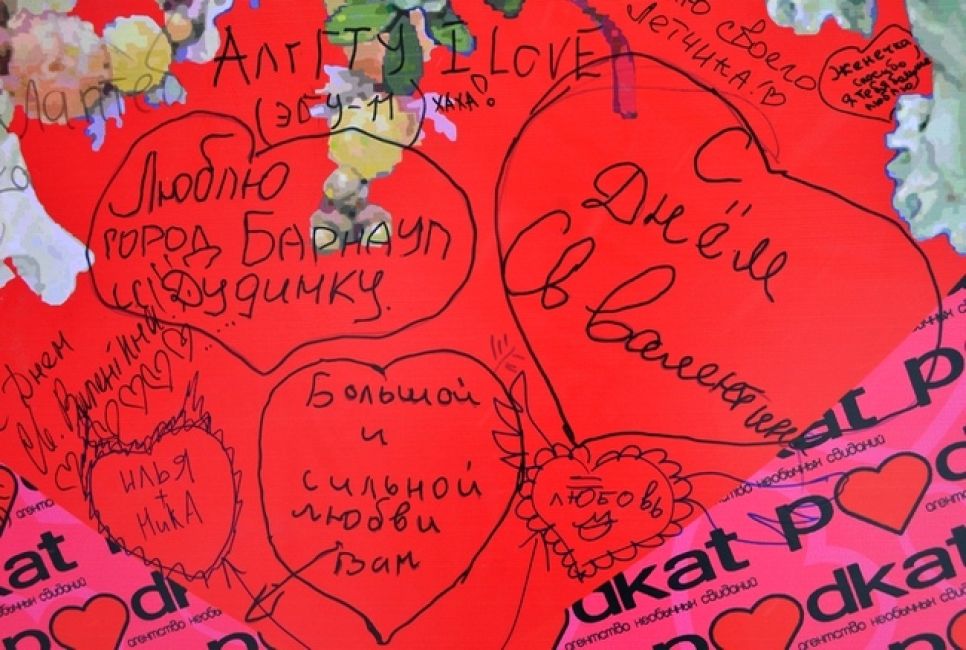 АлтГТУ I LOVE
(ЭБУ-11)
ХАХА!
своего
ЛЕТЧИКА!
Женечка,
спасибо
люблю
Люблю
город Барнаул
Дудинку
С
Днём
Св Валентина
Днем
Св. Валентина!
Большой
и
сильной
любви
Вам
ИЛЬЯ
+
НИКА
ЛЮБОВЬ
podkat
агентство необычных свиданий
podkat
агентство необычных свиданий
podkat
агентство необычных свиданий
dkat
агентство необычных свиданий